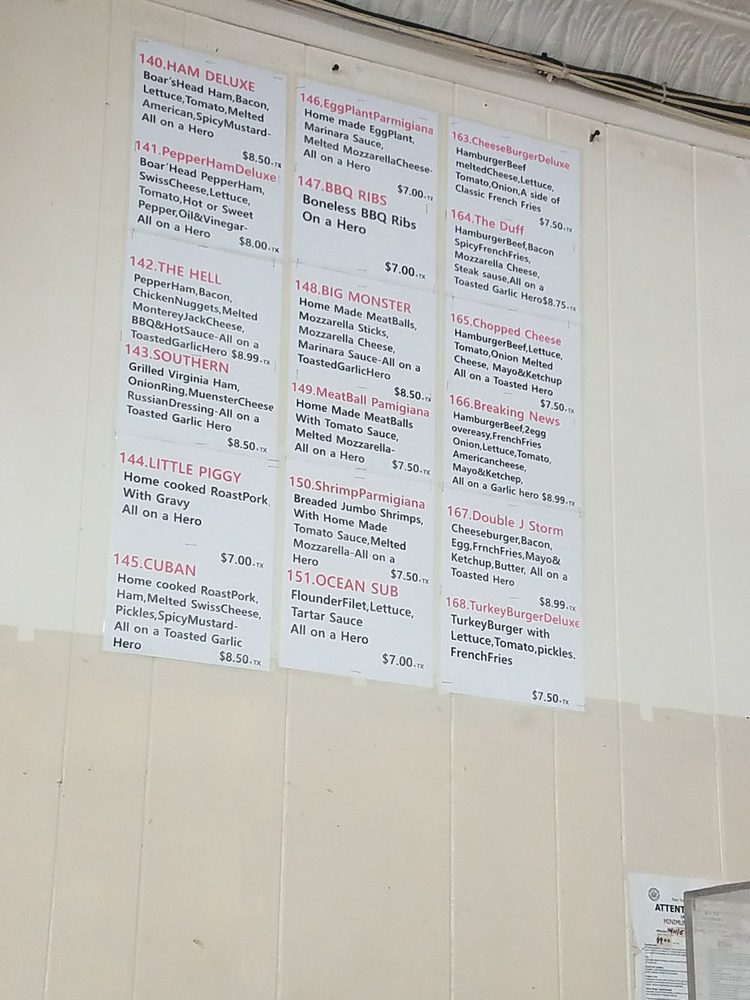 140.HAM DELUXE
Boar'sHead Ham,Bacon,
Lettuce,Tomato,Melted
American,SpicyMustard-
All on a Hero
$8.50+TX
141.PepperHamDeluxe
Boar'Head PepperHam,
SwissCheese,Lettuce,
Tomato,Hot or Sweet
Pepper,Oil&Vinegar-
All on a Hero
$8.00+TX
142.THE HELL
PepperHam,Bacon,
ChickenNuggets,Melted
MontereyJackCheese,
BBQ&HotSauce-All on a
ToastedGarlicHero $8.99+TX
143.SOUTHERN
Grilled Virginia Ham,
OnionRing,MuensterCheese
RussianDressing-All on a
Toasted Garlic Hero
$8.50+TX
144.LITTLE PIGGY
Home cooked RoastPork,
With Gravy
All on a Hero
$7.00+TX
145.CUBAN
Home cooked RoastPork,
Ham,Melted SwissCheese,
Pickles,SpicyMustard-
All on a Toasted Garlic
Hero
$8.50+TX
146,EggPlantParmigiana
Home made EggPlant,
Marinara Sauce,
Melted MozzarellaCheese-
All on a Hero
$7.00+TX
147.BBQ RIBS
Boneless BBQ Ribs
On a Hero
$7.00+TX
148.BIG MONSTER
Home Made MeatBalls,
Mozzarella Sticks,
Mozzarella Cheese,
Marinara Sauce-All on a
ToastedGarlicHero
$8.50+TX
149.MeatBall Pamigiana
Home Made MeatBalls
With Tomato Sauce,
Melted Mozzarella-
All on a Hero
$7.50+TX
150.ShrimpParmigiana
Breaded Jumbo Shrimps,
With Home Made
Tomato Sauce,Melted
Mozzarella-All on a
Hero
$7.50+TX
151.OCEAN SUB
FlounderFilet,Lettuce,
Tartar Sauce
All on a Hero
$7.00+TX
163.CheeseBurgerDeluxe
HamburgerBeef
meltedCheese,Lettuce,
Tomato,Onion,A side of
Classic French Fries
$7.50+TX
164.The Duff
HamburgerBeef,Bacon
SpicyFrenchFries,
Mozzarella Cheese,
Steak sause,All on a
Toasted Garlic Hero$8.75+TX
165.Chopped Cheese
HamburgerBeef,Lettuce,
Tomato,Onion Melted
Cheese, Mayo&Ketchup
All on a Toasted Hero
$7.50+TX
166.Breaking News
HamburgerBeef,2egg
overeasy,FrenchFries
Onion,Lettuce,Tomato,
Americancheese,
Mayo&Ketchep,
All on a Garlic hero $8.99+TX
167.Double J Storm
Cheeseburger,Bacon,
Egg,FrnchFries,Mayo&
Ketchup,Butter, All on a
Toasted Hero
$8.99+TX
168.TurkeyBurgerDeluxe
TurkeyBurger with
Lettuce,Tomato,pickles.
FrenchFries
$7.50+TX
ATTENT
MINIMU